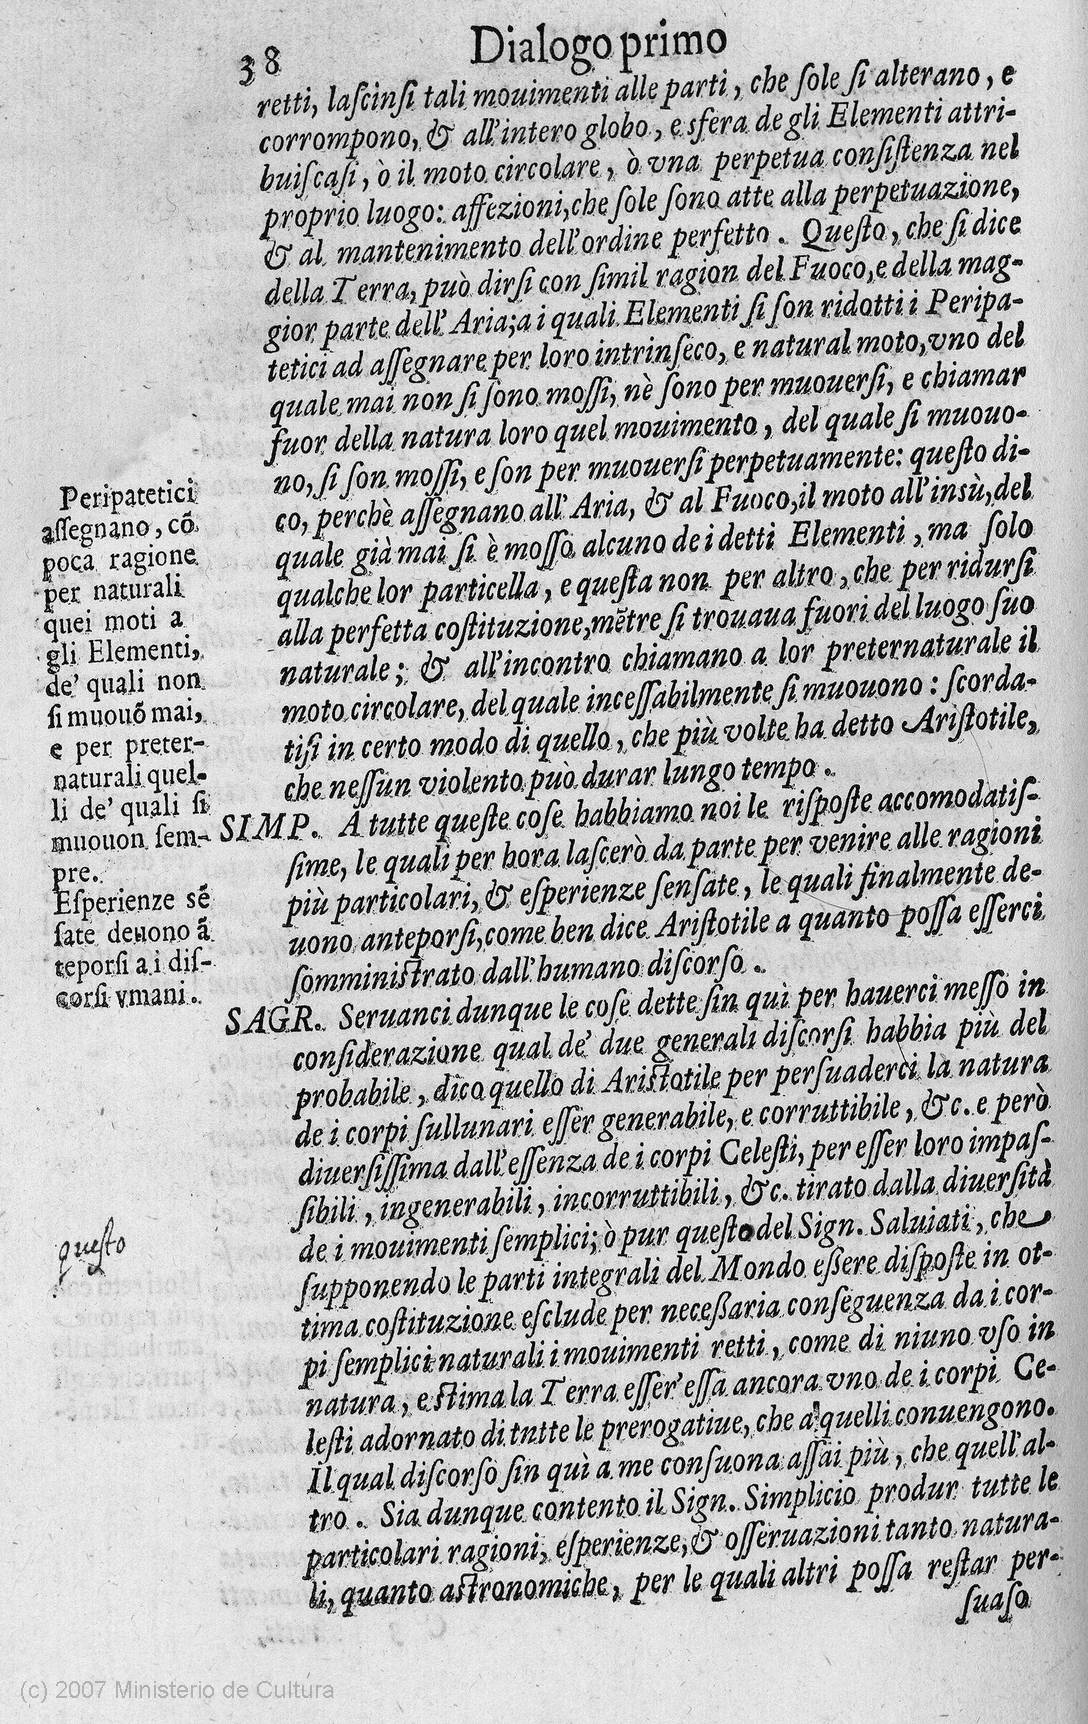 38
Dialogo primo
retti, laſcinſi tali mouimenti alle parti, che ſole ſi alterano, e
corrompono, & all'intero globo, e sfera de gli Elementi attri-
buiſcaſi, ò il moto circolare, ò vna perpetua conſiſtenza nel
proprio luogo: affezioni, che ſole ſono atte alla perpetuazione,
& al mantenimento dell'ordine perfetto. Queſto, che ſi dice
della Terra, può dirſi con ſimil ragion del Fuoco, e della mag-
gior parte dell'Aria; a i quali Elementi ſi ſon ridotti i Peripa-
tetici ad aſſegnare per loro intrinſeco, e natural moto, vno del
quale mai non ſi ſono moſſi, nè ſono per muouerſi, e chiamar
fuor della natura loro quel mouimento, del quale ſi muouo-
no, ſi ſon moſſi, e ſon per muouerſi perpetuamente: queſto di-
co, perchè aſſegnano all'Aria, & al Fuoco, il moto all'insù, del
quale già mai ſi è moſſo alcuno de i detti Elementi, ma ſolo
qualche lor particella, e queſta non per altro, che per ridurſi
alla perfetta coſtituzione, mẽtre ſi trouaua fuori del luogo ſuo
naturale; & all'incontro chiamano a lor preternaturale il
moto circolare, del quale inceſſabilmente ſi muouono: ſcorda-
tiſi in certo modo di quello, che più volte ha detto Ariſtotile,
che neſſun violento può durar lungo tempo.
Peripatetici
aſſegnano, cõ
poca ragione
per naturali
quei moti a
gli Elementi,
de' quali non
ſi muouõ mai,
e per preter-
naturali quel-
li de' quali ſi
muouon ſem-
pre.
SIMP. A tutte queſte coſe habbiamo noi le riſpoſte accomodatiſ-
ſime, le quali per hora laſcerò da parte per venire alle ragioni
più particolari, & eſperienze ſenſate, le quali finalmente de-
uono anteporſi, come ben dice Ariſtotile a quanto poſſa eſſerci
ſomminiſtrato dall'humano diſcorſo.
Eſperienze sẽ
ſate deuono ã
teporſi a i diſ-
corſi vmani.
SAGR. Seruanci dunque le coſe dette ſin quì per hauerci meſſo in
conſiderazione qual de' due generali diſcorſi habbia più del
probabile, dico quello di Ariſtotile per perſuaderci la natura
de i corpi ſullunari eſſer generabile, e corruttibile, &c. e però
diuerſiſſima dall'eſſenza de i corpi Celeſti, per eſſer loro impaſ-
ſibili, ingenerabili, incorruttibili, &c. tirato dalla diuerſità
de i mouimenti ſemplici; ò pur queſto del Sign. Saluiati, che
ſupponendo le parti integrali del Mondo eßere diſpoſte in ot-
tima coſtituzione eſclude per neceßaria conſeguenza da i cor-
pi ſemplici naturali i mouimenti retti, come di niuno vſo in
natura, e ſtima la Terra eſſer'eſſa ancora vno de i corpi Ce-
leſti adornato di tntte le prerogatiue, che a quelli conuengono.
Il qual diſcorſo ſin quì a me conſuona aſſai più, che quell'al-
tro. Sia dunque contento il Sign. Simplicio produr tutte le
particolari ragioni, eſperienze, & oſſeruazioni tanto natura-
li, quanto aſtronomiche, per le quali altri poſſa reſtar per-
ſuaſo
queſto
(c) 2007 Ministerio de Cultura